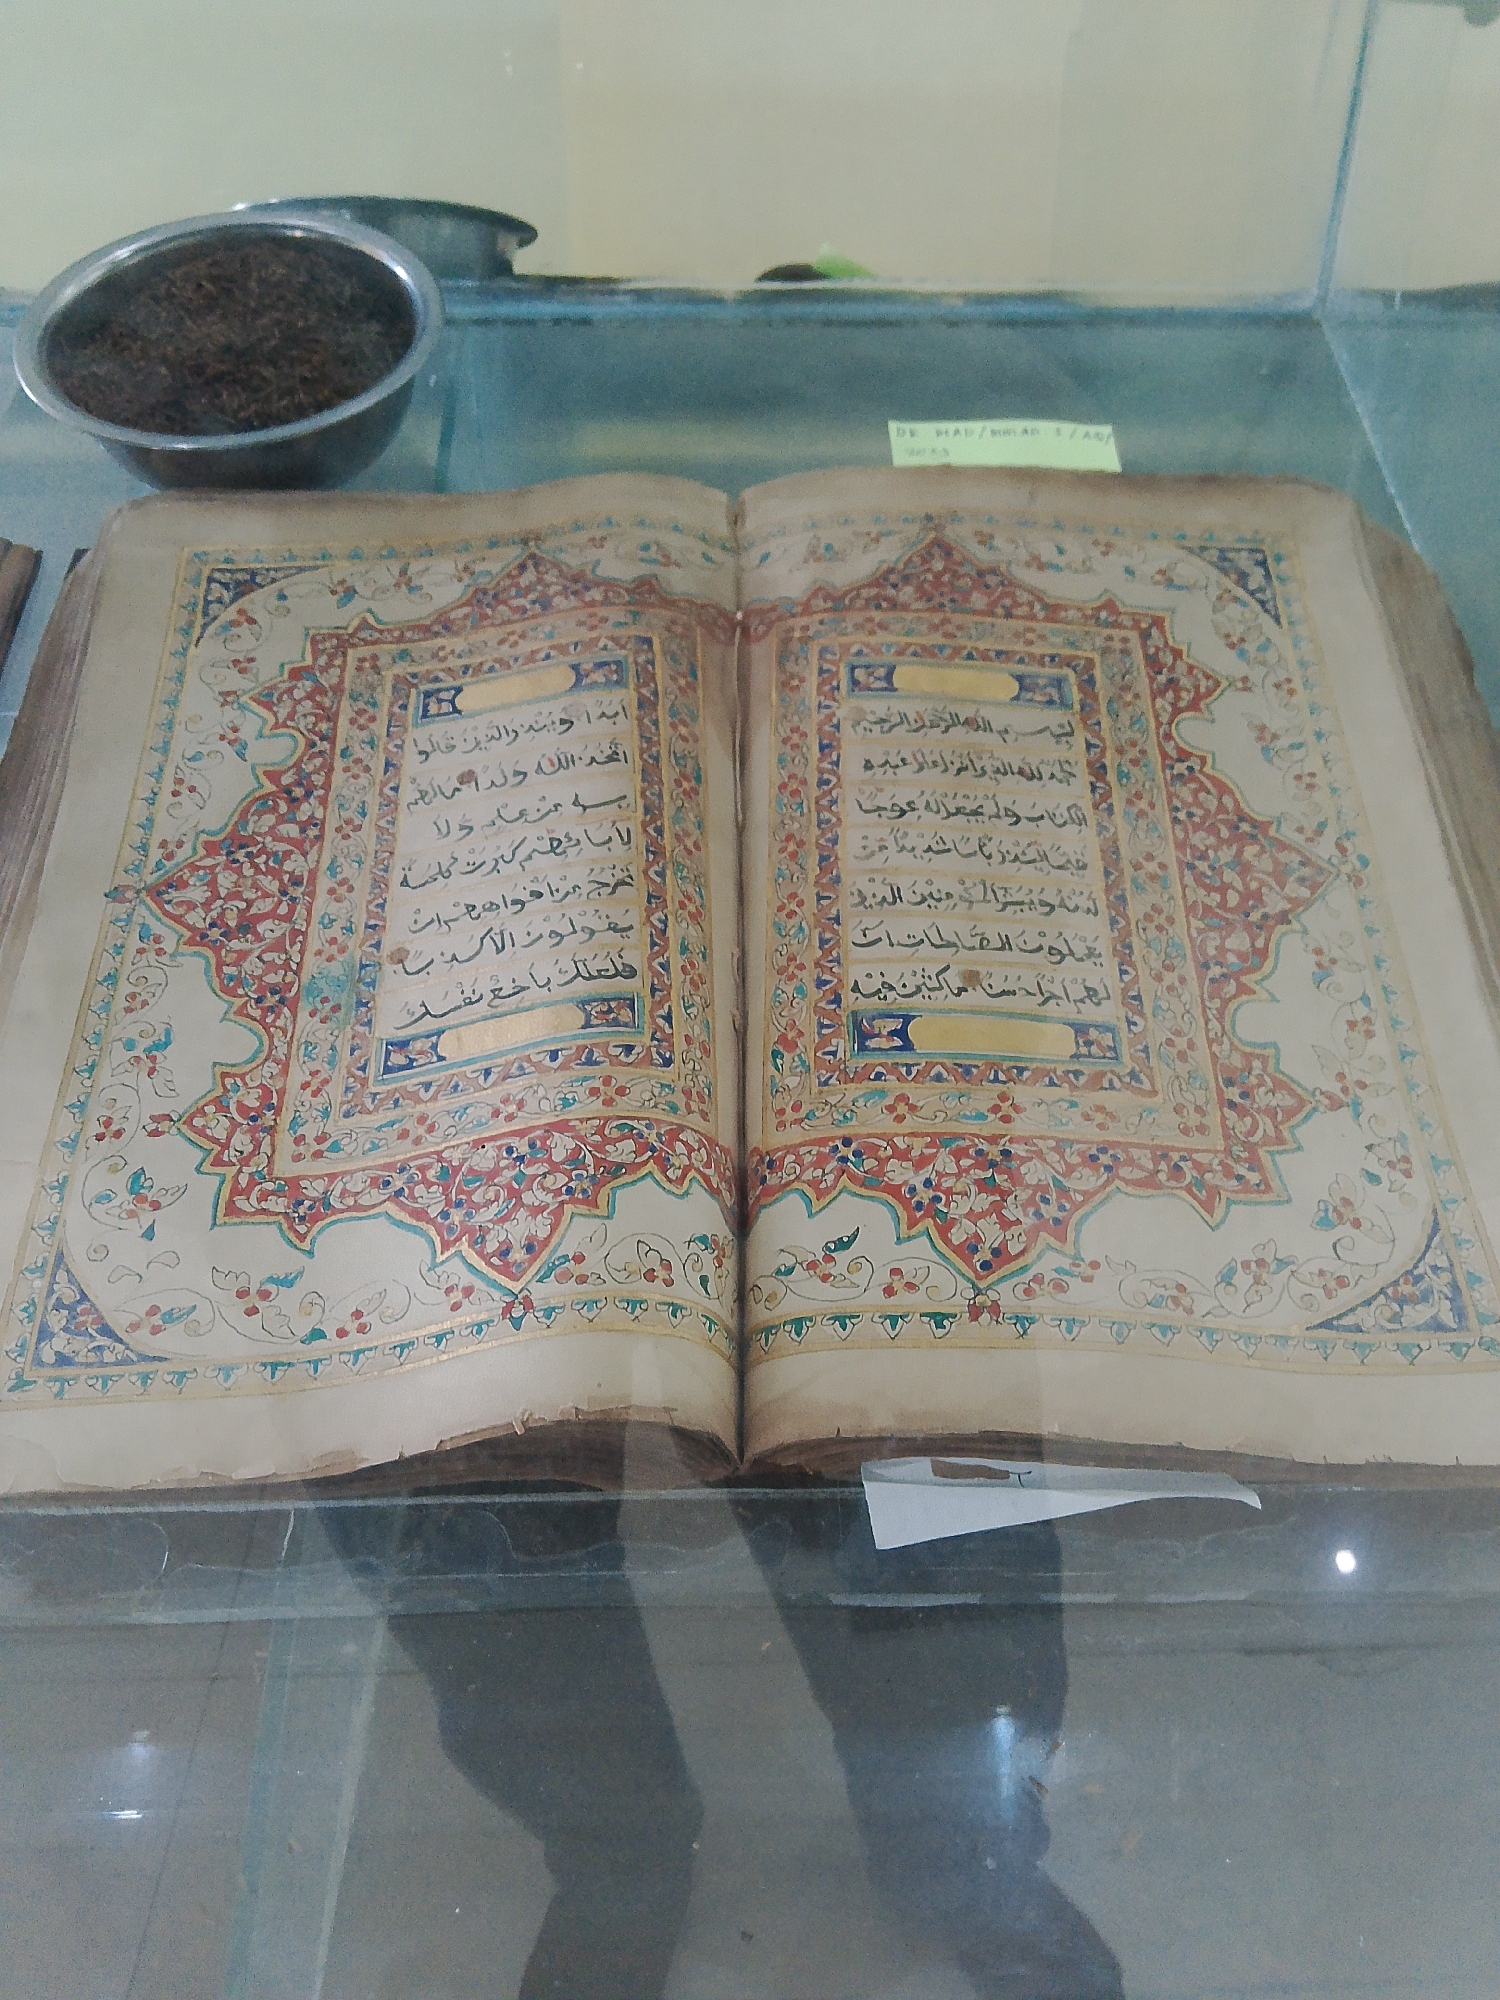 بسم الله الرحمن الرحيم
الحمد لله الذي أنزل على عبده
الكتاب ولم يجعل له عوجا
قيما لينذر بأسا شديدا من
لدنه ويبشر المؤمنين الذين
يعملون الصالحات ان
لهم اجرا حسنا ماكثين فيه
ابدا وينذر الذين قالوا
اتخذ الله ولدا ما لهم
به من علم ولا
لأبائهم كبرت كلمة
تخرج من افواههم ان
يقولون الا كذبا
فلعلك باخع نفسك